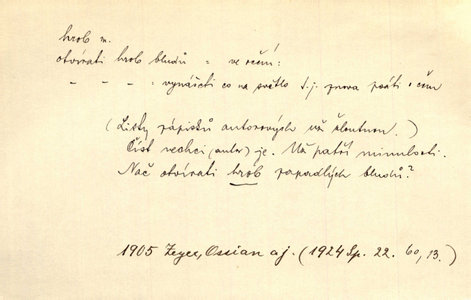 hrob m.
otvírati hrob bludů = ve rčení:
– – – = vynášeti co na světlo t.j. znova psáti o čem
(Listy zápisků autorových už žloutnou.)
Číst nechci (autor) je. Už patří minulosti.
Nač otvírati hrob zapadlých bludů?
1905 Zeyer, Ossian a j. (1924 Sp. 22. 60, 13.)